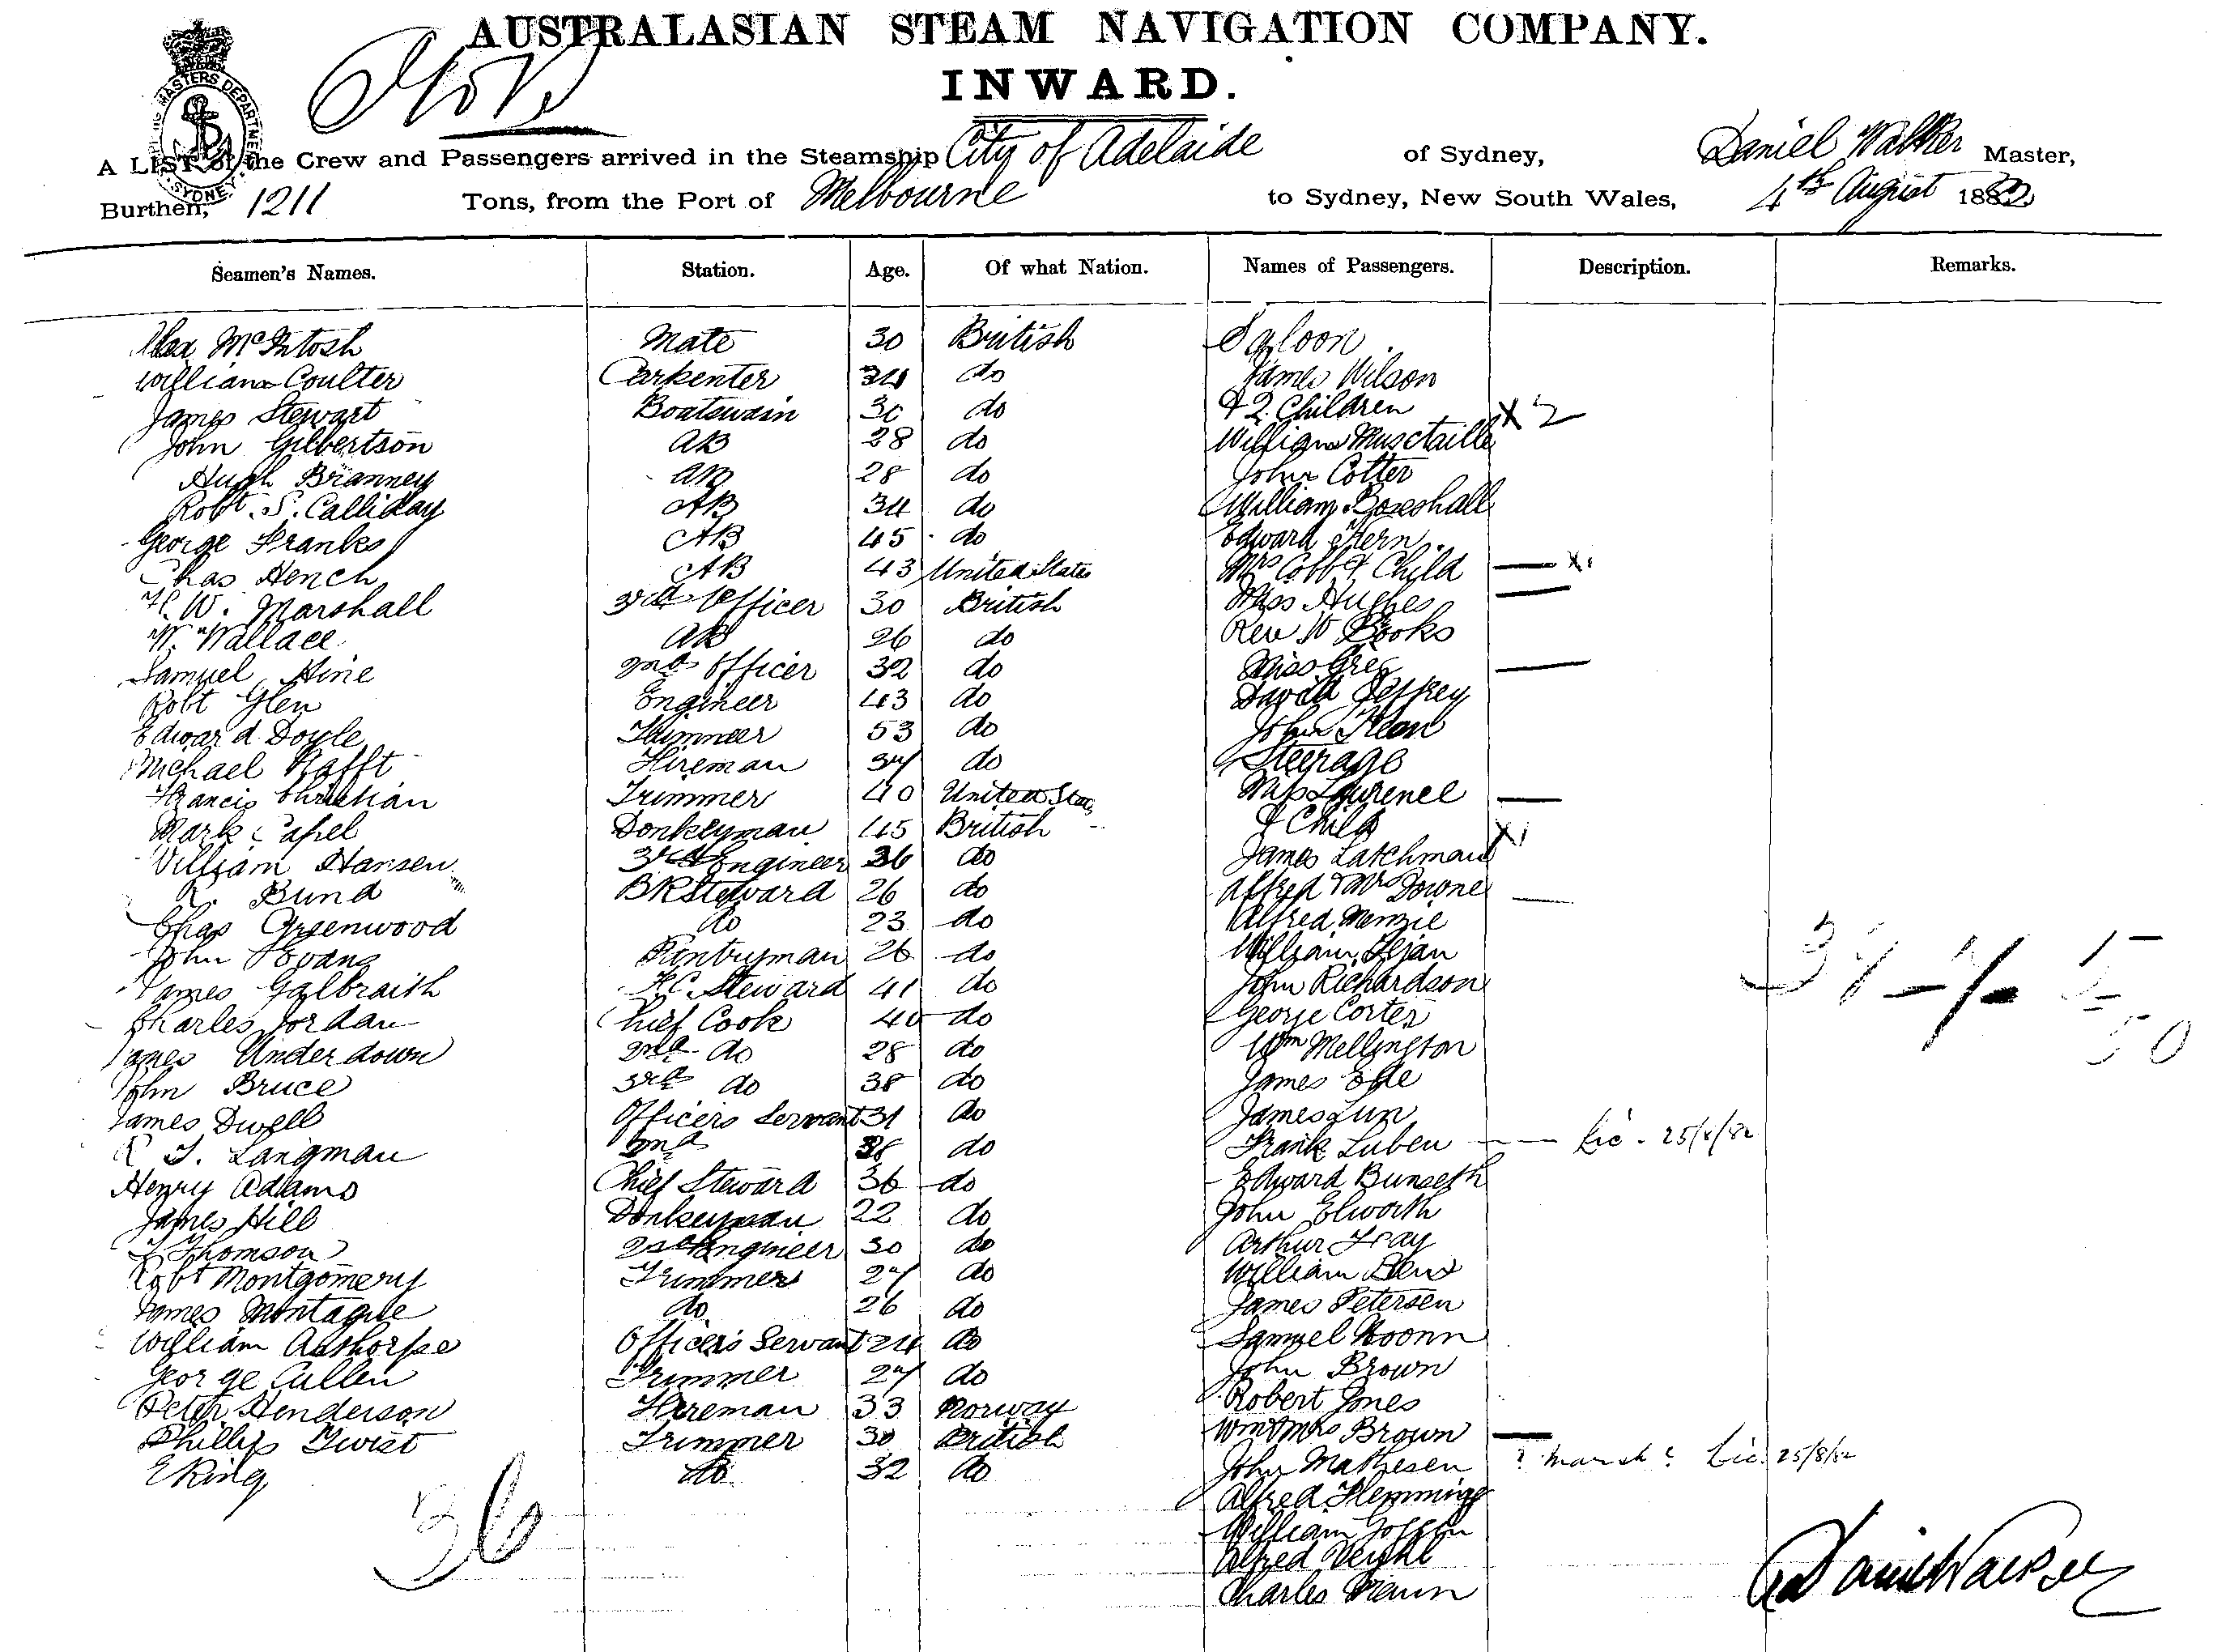 AUSTRALASIAN STEAM NAVIGATION COMPANY.
INWARD.
A LIST of the Crew and Passengers arrived in the Steamship City of Adelaide of Sydney, Daniel Walker Master,
Burthen, 1211 Tons, from the Port of Melbourne to Sydney, New South Wales, 4th August 1882
Seamen's Names. Station. Age. Of what Nation. Names of Passengers. Description. Remarks.
Alex McIntosh Mate 30 British Saloon
William Coulter Carpenter 34 do James Wilson
James Stewart Boatswain 30 do & 2 Children x 2
John Gilbertson AB 28 do William
Hugh Branney AB 28 do John Cotter
Robt. S. Calliday AB 34 do William Boxshall
George Franks AB 45 do Edward Hern
Chas Hench AB 43 United States Mrs Cobb & Child x1
H. W. Marshall 3rd Officer 30 British Miss Hughes
W. Wallace AB 26 do Rev W Books
Samuel Hine 2nd Officer 32 do Miss Greg
Robt Glen Engineer 43 do David Jeffrey
Edward Doyle 53 do John
Michael Rafft Fireman 34 do Steerage
Francis Christian Trimmer 40 United States Mrs Laurence
Mark Capel Donkeyman 45 British & Child x1
William Hansen 3rd Engineer 36 do James Latchman
R. Bund BR Steward 26 do Alfred & Mrs Downe
Chas Greenwood do 23 do Alfred Menzie
John Evans Pantryman 26 do William
James Galbraith F.C. Steward 41 do John Richardson
Charles Jordan Chief Cook 40 do George Corter
James Underdown 2nd do 28 do Wm Mellington
John Bruce 3rd do 38 do James
James Dwell Officers Servant 31 do James Lun
R J. Langman 2nd do Frank Luben Lic. 25/8/82
Henry Adams Chief Steward 36 do Edward Bunseth
James Hill Donkeyman 22 do John Elworth
Thomson 2nd Engineer 30 do Arthur Gray
Robt Montgomery Trimmer 27 do William
James Montague do 26 do James Petersen
William Asthorpe Officers Servant 24 do Samuel
George Cullen Trimmer 27 do John Brown
Peter Henderson Fireman 33 Norway Robert Jones
Phillip Twist Trimmer 30 British Wm & Mrs Brown
E King do 32 do John Mathesen ? March ? Lic. 25/8/82
Alfred Flemming
William
Alfred
Charles
36
Daniel Walker